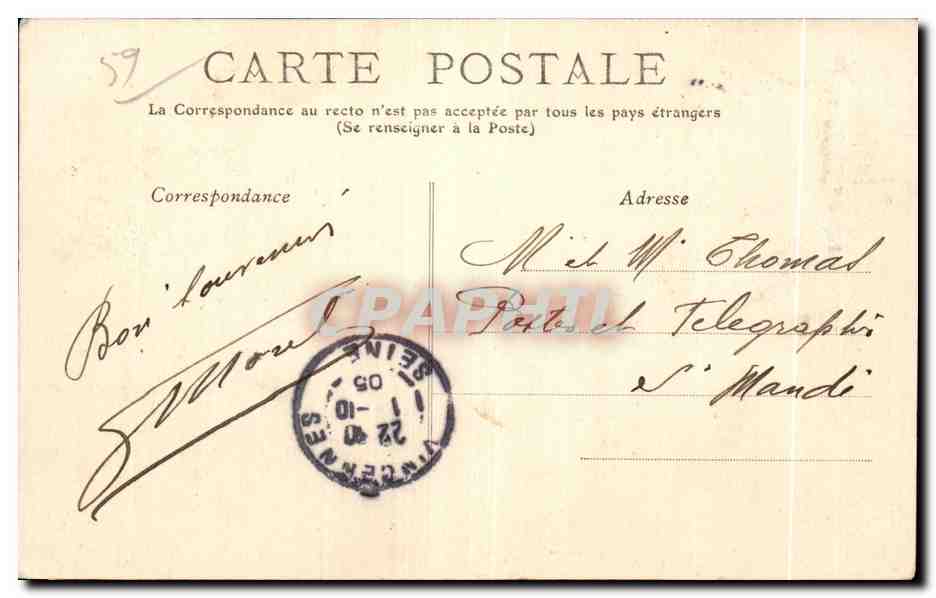 59
CARTE POSTALE
La Correspondance au recto n'est pas acceptée par tous les pays étrangers
(Se renseigner à la Poste)
Correspondance
Adresse
Bon souvenir
Morel
M et Mme Thomas
Postes et Telegraphes
St Mandé
VINCENNES
22 10
1 -10
05
SEINE
CPAPHIL